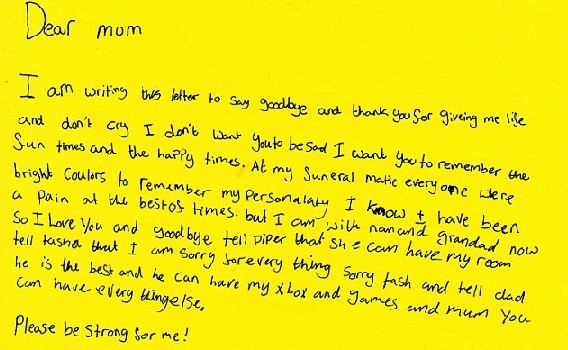 Dear mom
I am writing this letter to say goodbye and thank you for giveing me life
and don't cry I don't want you to be sad I want you to remember the
fun times and the happy times. At my funeral make everyone were
bright coulors to remember my personalaty I know I have been
a pain at the best of times. but I am with nan and grandad now
so I Love you and goodbye tell piper that she can have my room
tell tasha that I am sorry for every thing sorry tash and tell dad
he is the best and he can have my xbox and games and mum you
can have every thing else.
Please be strong for me!